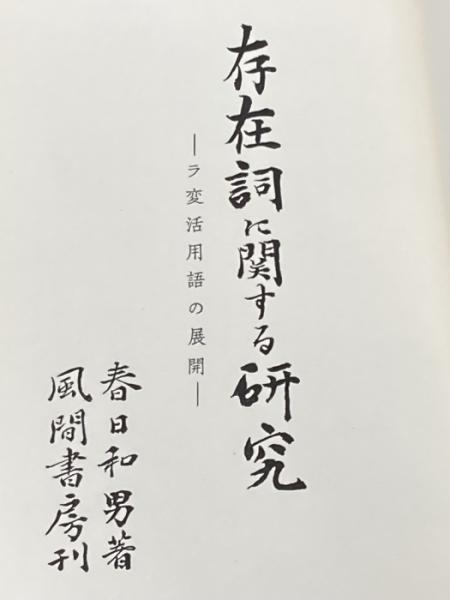 存在詞に関する研究
―ラ変活用語の展開―
春日和男著
風間書房刊